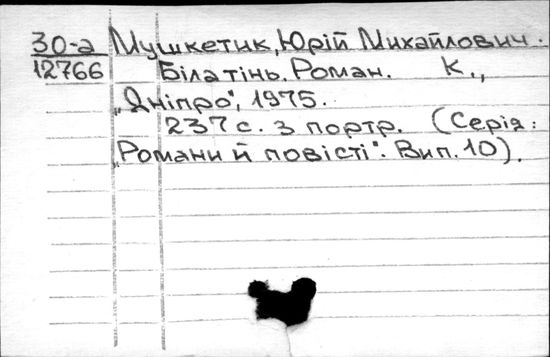 30-а Мушкетик, Юрій Михайлович.
12766 Біла тінь. Роман. К.,
„Дніпро", 1975.
237 с. з портр. (Серія:
„Романи й повісті". Вип. 10).